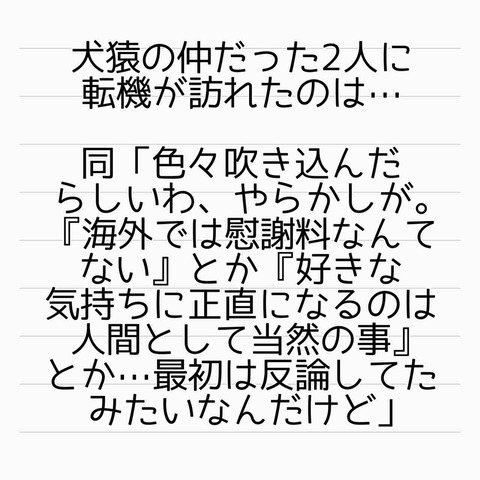 犬猿の仲だった2人に
転機が訪れたのは…
同「色々吹き込んだ
らしいわ、やらかしが。
『海外では慰謝料なんて
ない』とか『好きな
気持ちに正直になるのは
人間として当然の事』
とか…最初は反論してた
みたいなんだけど」